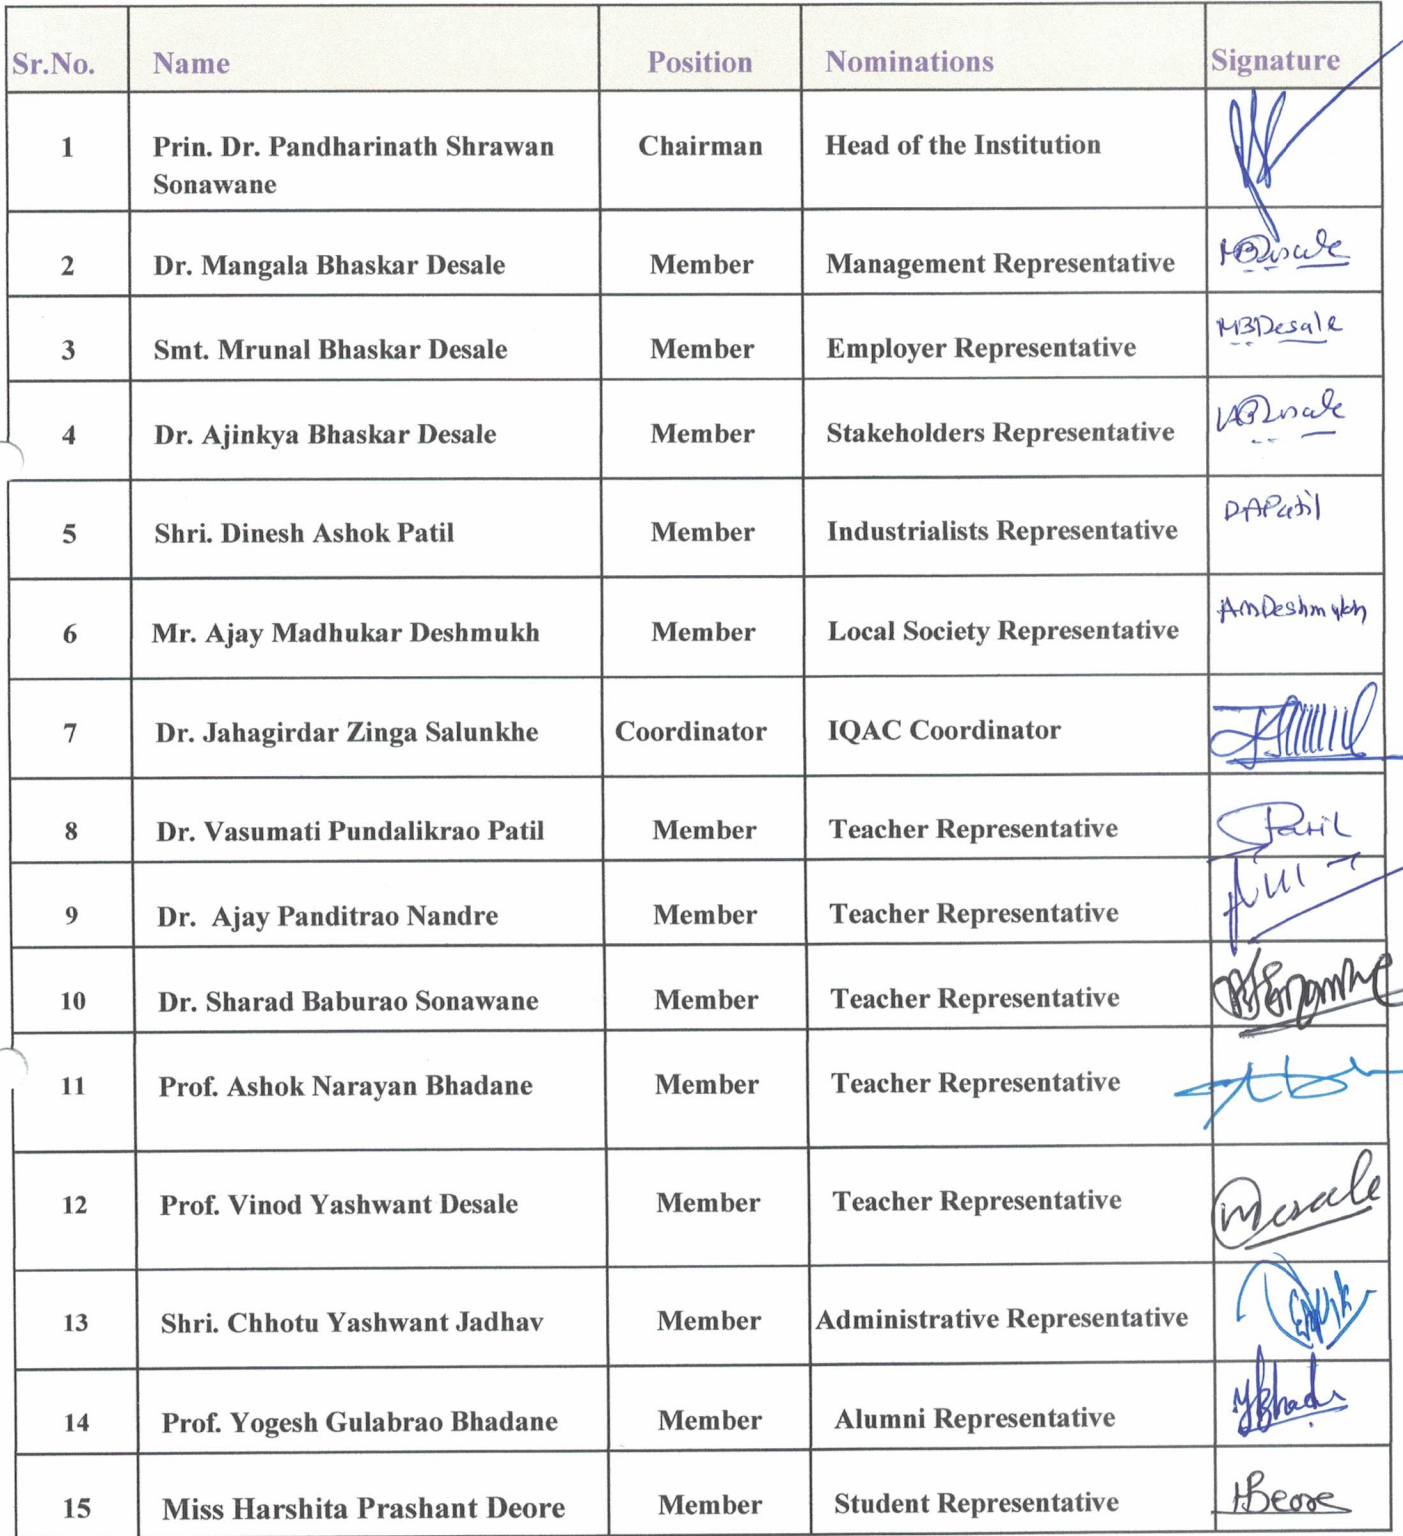 Sr.No. Name Position Nominations Signature
1 Prin. Dr. Pandharinath Shrawan Chairman Head of the Institution
Sonawane
2 Dr. Mangala Bhaskar Desale Member Management Representative MBDesale
3 Smt. Mrunal Bhaskar Desale Member Employer Representative MBDesale
4 Dr. Ajinkya Bhaskar Desale Member Stakeholders Representative ABDesale
5 Shri. Dinesh Ashok Patil Member Industrialists Representative DAPatil
6 Mr. Ajay Madhukar Deshmukh Member Local Society Representative AMDeshmukh
7 Dr. Jahagirdar Zinga Salunkhe Coordinator IQAC Coordinator
8 Dr. Vasumati Pundalikrao Patil Member Teacher Representative Patil
9 Dr. Ajay Panditrao Nandre Member Teacher Representative
10 Dr. Sharad Baburao Sonawane Member Teacher Representative
11 Prof. Ashok Narayan Bhadane Member Teacher Representative
12 Prof. Vinod Yashwant Desale Member Teacher Representative
13 Shri. Chhotu Yashwant Jadhav Member Administrative Representative
14 Prof. Yogesh Gulabrao Bhadane Member Alumni Representative
15 Miss Harshita Prashant Deore Member Student Representative HDeore